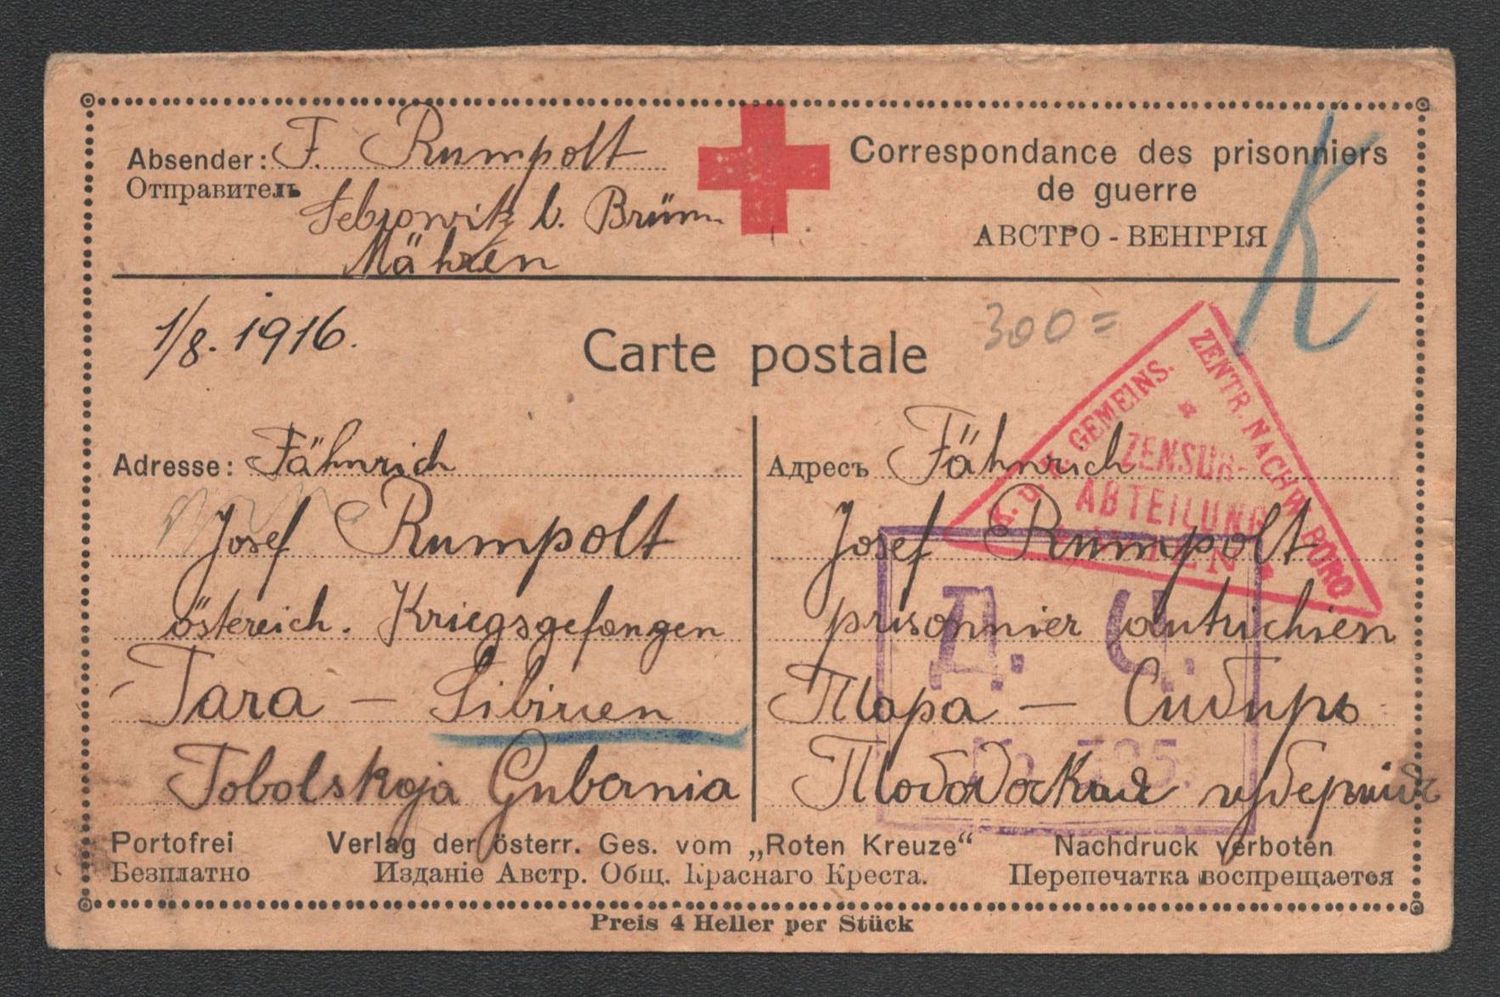 Absender: F. Rumpolt
Отправитель
Sebrowitz b. Brünn
Mähren
Correspondance des prisonniers
de guerre
АВСТРО - ВЕНГРІЯ
K
1/8. 1916.
Carte postale
300 =
K. u. K. GEMEINS.
ZENTR. NACHW. BÜRO
ZENSUR-
ABTEILUNG
WIEN
Adresse: Fähnrich
Josef Rumpolt
östereich. Kriegsgefangen
Tara — Sibirien
Tobolskaja Gubernia
Адресъ Fähnrich
Josef Rumpolt
prisonnier autrichien
Тара — Сибирь
Тобольская губернія
Д. Ц.
Portofrei Verlag der österr. Ges. vom „Roten Kreuze“ Nachdruck verboten
Безплатно Изданіе Австр. Общ. Краснаго Креста. Перепечатка воспрещается
Preis 4 Heller per Stück